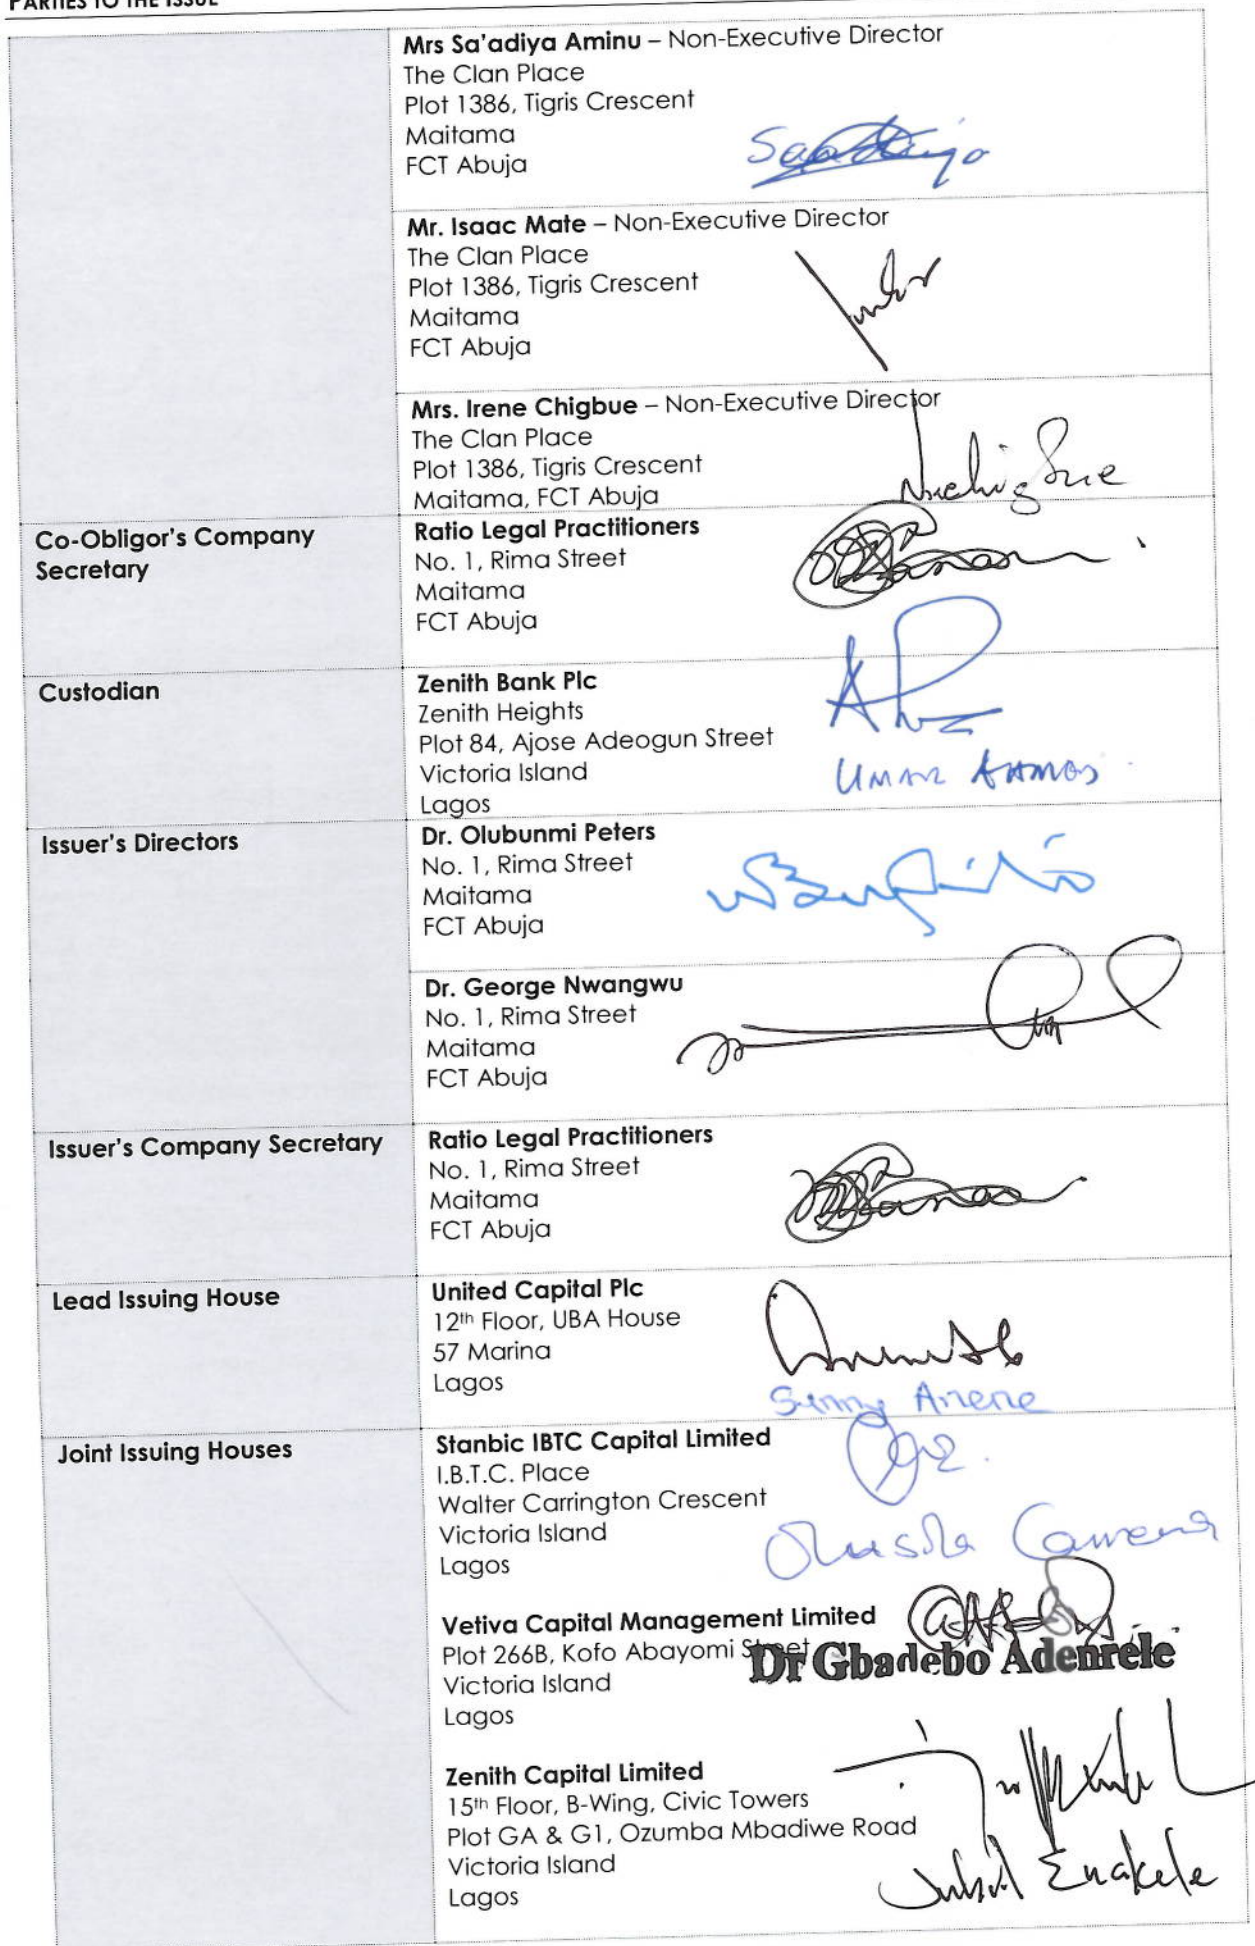 PARTIES TO THE ISSUE
Mrs Sa'adiya Aminu – Non-Executive Director
The Clan Place
Plot 1386, Tigris Crescent
Maitama
FCT Abuja
Mr. Isaac Mate – Non-Executive Director
The Clan Place
Plot 1386, Tigris Crescent
Maitama
FCT Abuja
Mrs. Irene Chigbue – Non-Executive Director
The Clan Place
Plot 1386, Tigris Crescent
Maitama, FCT Abuja
Co-Obligor's Company
Secretary
Ratio Legal Practitioners
No. 1, Rima Street
Maitama
FCT Abuja
Custodian
Zenith Bank Plc
Zenith Heights
Plot 84, Ajose Adeogun Street
Victoria Island
Lagos
Issuer's Directors
Dr. Olubunmi Peters
No. 1, Rima Street
Maitama
FCT Abuja
Dr. George Nwangwu
No. 1, Rima Street
Maitama
FCT Abuja
Issuer's Company Secretary
Ratio Legal Practitioners
No. 1, Rima Street
Maitama
FCT Abuja
Lead Issuing House
United Capital Plc
12th Floor, UBA House
57 Marina
Lagos
Sunny Anene
Joint Issuing Houses
Stanbic IBTC Capital Limited
I.B.T.C. Place
Walter Carrington Crescent
Victoria Island
Lagos
Vetiva Capital Management Limited
Plot 266B, Kofo Abayomi Street
Dr Gbadebo Adenrele
Victoria Island
Lagos
Zenith Capital Limited
15th Floor, B-Wing, Civic Towers
Plot GA & G1, Ozumba Mbadiwe Road
Victoria Island
Lagos
Enakele